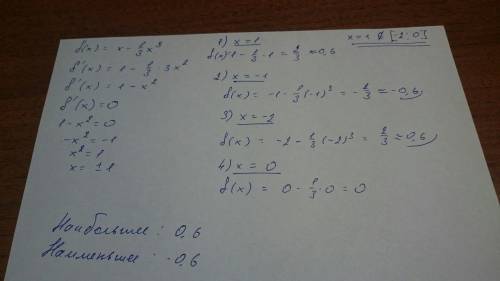 f(x) = x - 1/3 x³
f'(x) = 1 - 1/3 · 3x²
f'(x) = 1 - x²
f'(x) = 0
1 - x² = 0
-x² = -1
x² = 1
x = ±1
1) x = 1
f(x) = 1 - 1/3 · 1 = 2/3 ≈ 0,6
2) x = -1
f(x) = -1 - 1/3 (-1)³ = -2/3 ≈ -0,6
3) x = -2
f(x) = -2 - 1/3 (-2)³ = 2/3 ≈ 0,6
4) x = 0
f(x) = 0 - 1/3 · 0 = 0
x = 1 ∉ [-2; 0]
Наибольшее : 0,6
Наименьшее : -0,6